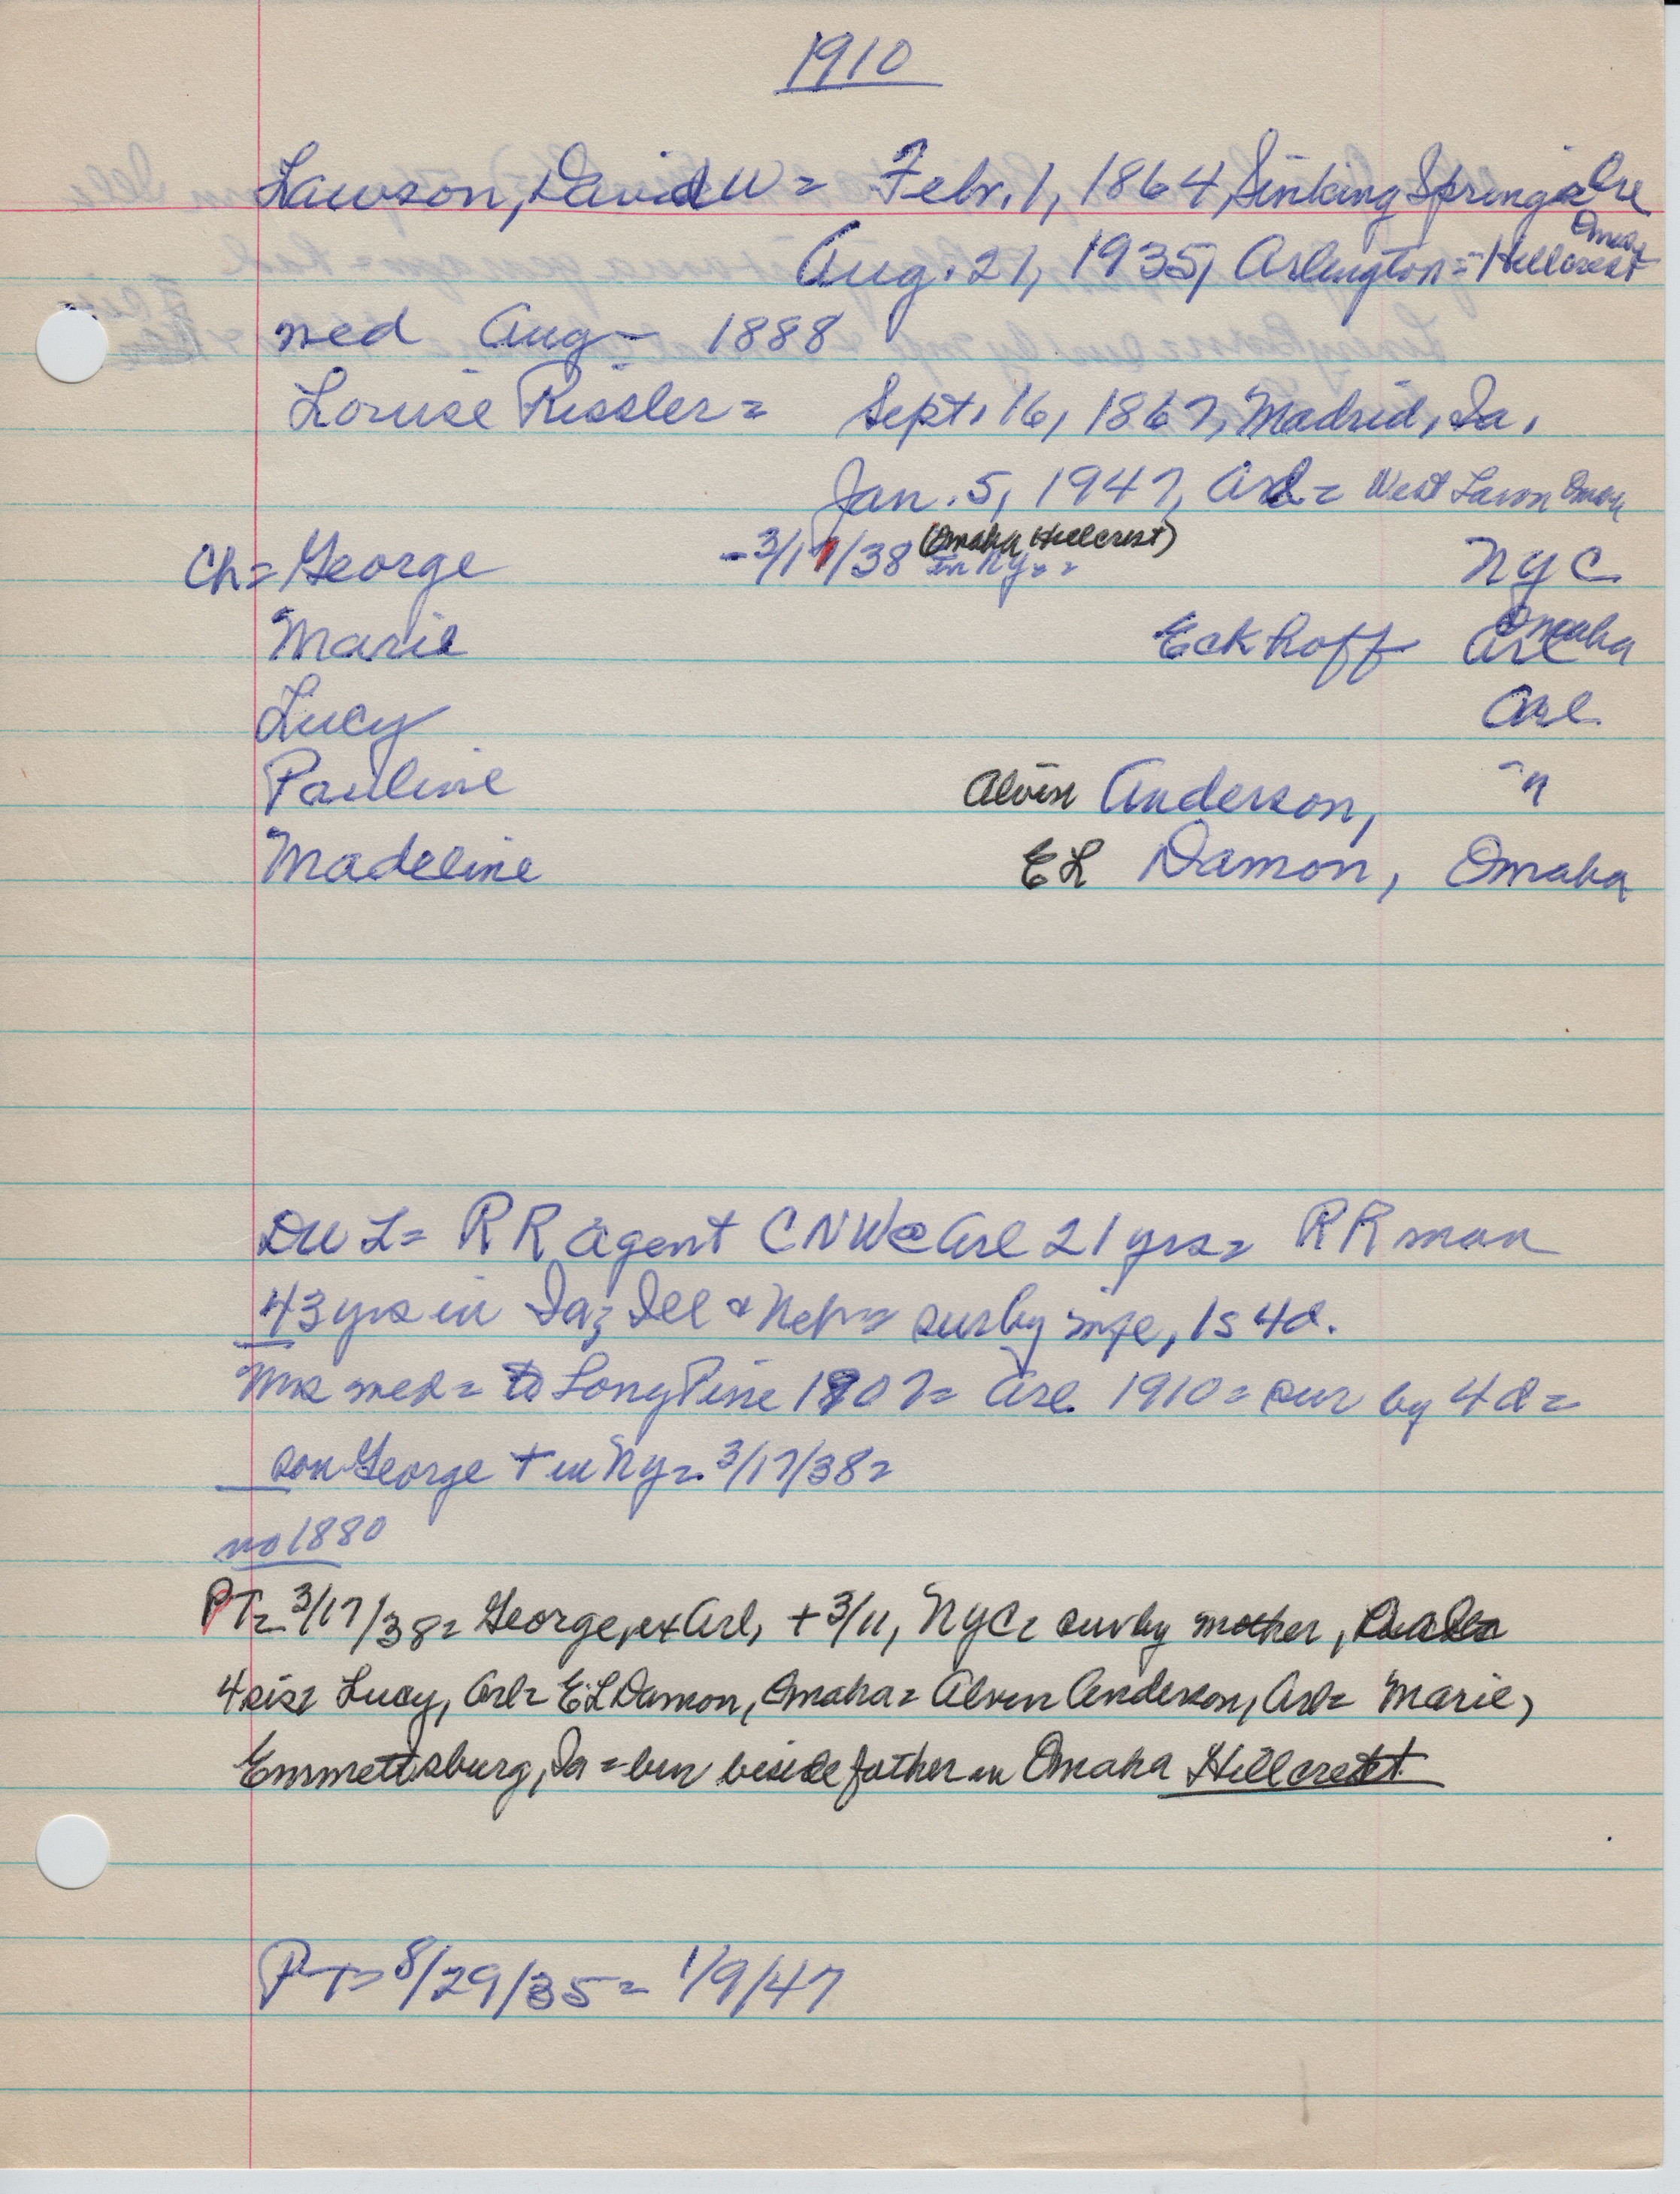 1910
Lawson, David W = Febr. 1, 1864, Sinking Springs
Omaha
Aug. 21, 1935, Arlington = Hillcrest
med Aug - 1888
Louise Rissler = Sept. 16, 1867, Madrid, Ia.
Jan. 5, 1947, Arl = West Lawn Omaha
(Omaha Hillcrest)
Ch = George - 3/17/38 in Ny = = NYC
Omaha
Marie Eckhoff Arl
Lucy Arl.
Pauline Alvin Anderson, "
Madeline EL Damon, Omaha
DWL = RR agent CNW @ Arl 21 yrs = RR man
43 yrs in Ia, Ill & Neb = surby wife, 1s 4d.
Mrs med = to Long Pine 1907 = Arl. 1910 = sur by 4d =
son George + in Ny = 3/17/38 =
no 1880
PT = 3/17/38 = George, ex Arl, + 3/11, NYC = survby mother,
4 sis = Lucy, Arl = EL Damon, Omaha = Alvin Anderson, Arl = Marie,
Emmettsburg, Ia = bur beside father in Omaha Hillcrest
PT = 8/29/35 = 1/9/47